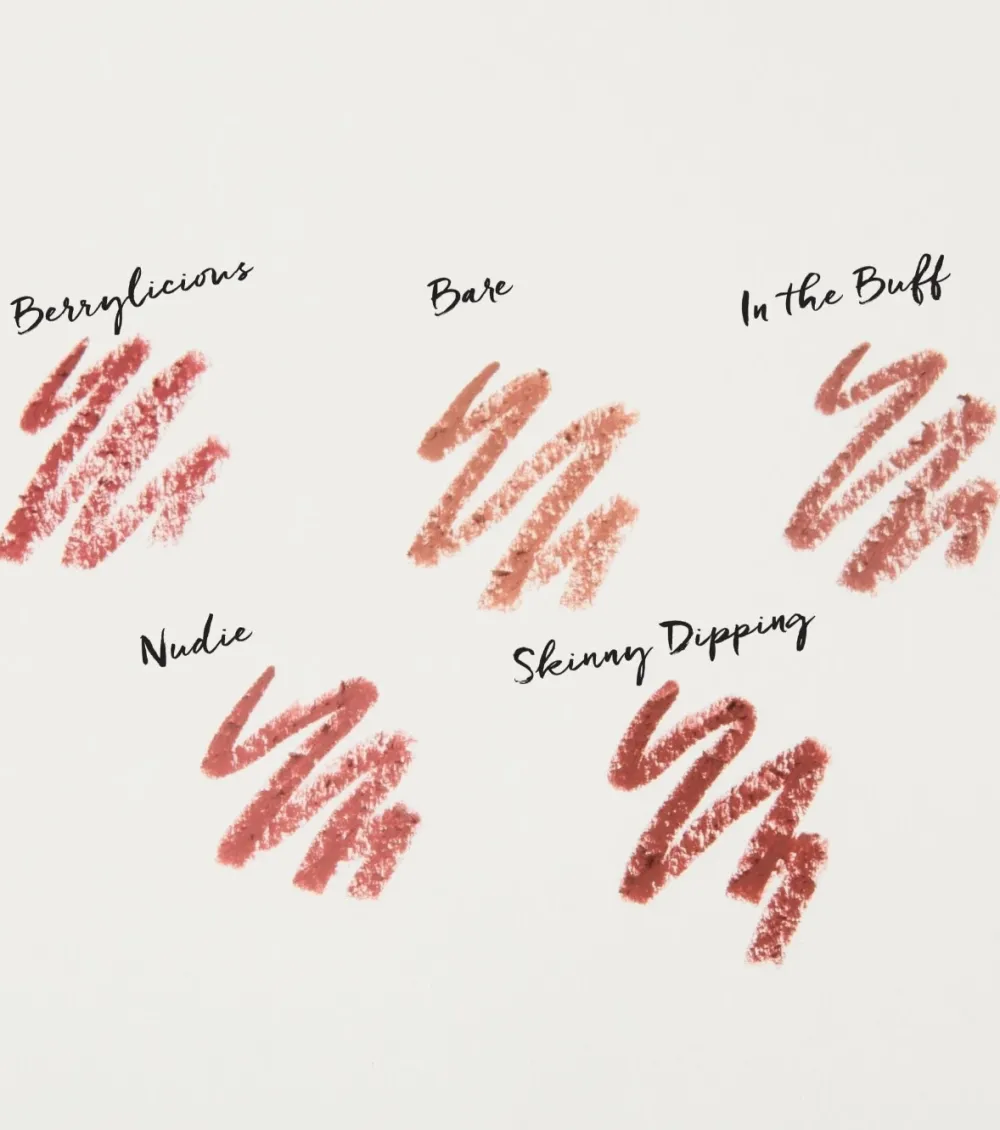 Berrylicious
Bare
In the Buff
Nudie
Skinny Dipping